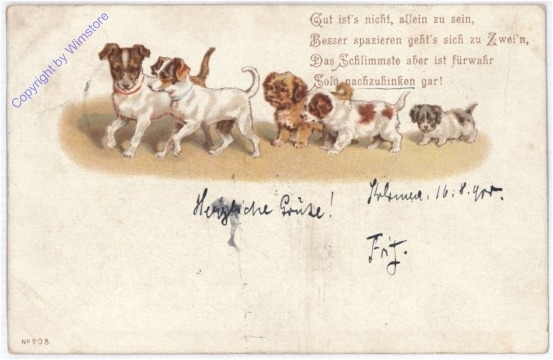 Copyright by Wimstore
Gut ist's nicht, allein zu sein,
Besser spazieren geht's sich zu Zwei'n,
Das Schlimmste aber ist fürwahr
Solo nachzuhinken gar!
Herzliche Grüße!
16.8.
Fritz.
No 908